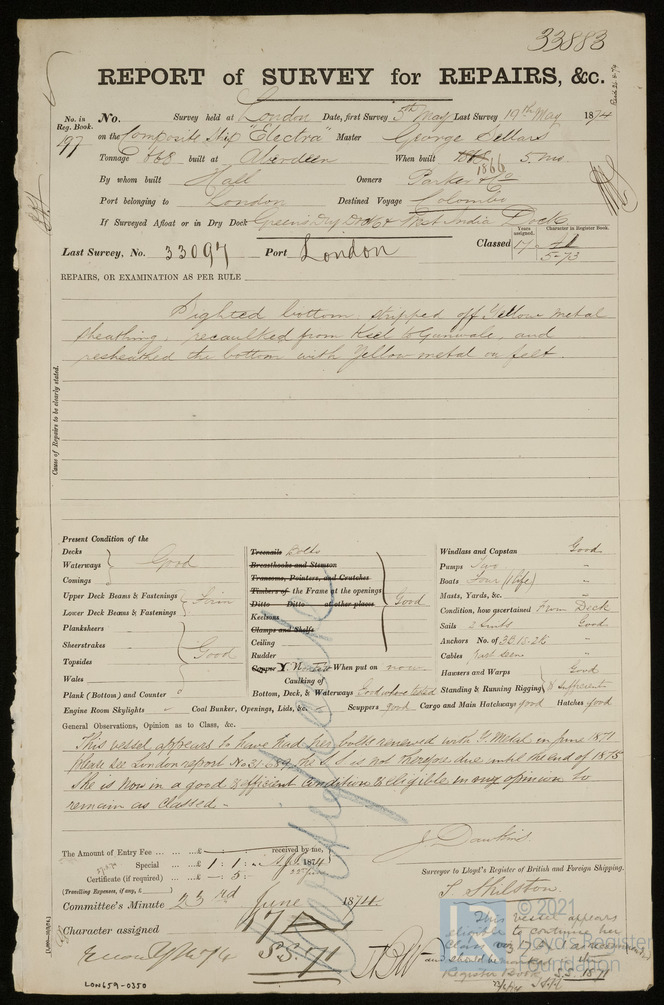 33883
REPORT of SURVEY for REPAIRS, &c.
No. in Reg. Book. 197
No. Survey held at London Date, first Survey 5th May Last Survey 19th May 1874
on the Composite Ship "Electra" Master George Sellars
Tonnage 668 built at Aberdeen When built 1866 5 mo.
By whom built Hall Owners Parker & Co
Port belonging to London Destined Voyage Colombo
If Surveyed Afloat or in Dry Dock Greens Dry Dock & West India Dock
Last Survey, No. 33097 Port London Classed 17 A1 5-73
Years assigned. Character in Register Book.
REPAIRS, OR EXAMINATION AS PER RULE
Cause of Repairs to be clearly stated.
Sighted bottom. stripped off Yellow metal
sheathing, recaulked from Keel to Gunwale, and
resheathed the bottom with Yellow metal on felt.
Present Condition of the
Decks
Waterways Good
Comings
Upper Deck Beams & Fastenings
Lower Deck Beams & Fastenings
Planksheers
Sheerstrakes Good
Topsides
Wales
Plank (Bottom) and Counter
Treenails Bolts
Breasthooks and Stemson
Transoms, Pointers, and Crutches
Timbers of the Frame at the openings
Ditto Ditto at other places Good
Keelsons
Clamps and Shelfs
Ceiling
Rudder
Copper Y. Metal When put on now
Caulking of
Bottom, Deck, & Waterways Good where tested
Windlass and Capstan Good
Pumps Two "
Boats Four (1 life) "
Masts, Yards, &c. "
Condition, how ascertained From Deck
Sails 2 Suits Good
Anchors No. of "
Cables "
Hawsers and Warps Good
Standing & Running Rigging & Sufficient
Engine Room Skylights - Coal Bunker, Openings, Lids, &c. Scuppers good Cargo and Main Hatchways good Hatches good
General Observations, Opinion as to Class, &c.
This vessel appears to have had her bolts renewed with Y. Metal in June 1871
please see London report No. 31,689, the S.S is not therefore due until the end of 1875
She is now in a good & efficient condition & eligible in my opinion to
remain as Classed.-
The Amount of Entry Fee ... £ : : received by me,
Special ... £ 1 : 1 : 1874
Certificate (if required) ... £ - : 5 :
(Travelling Expenses, if any, £ )
J. Dawkins.
Surveyor to Lloyd's Register of British and Foreign Shipping.
T. Skilston.
Committee's Minute 23rd June 1874
Character assigned 17 A
S.S. 71
This vessel appears
eligible to continue her
Class
and should be
Register Book S.S. 1871
LON659-0350
© 2021
Lloyd's Register
Foundation